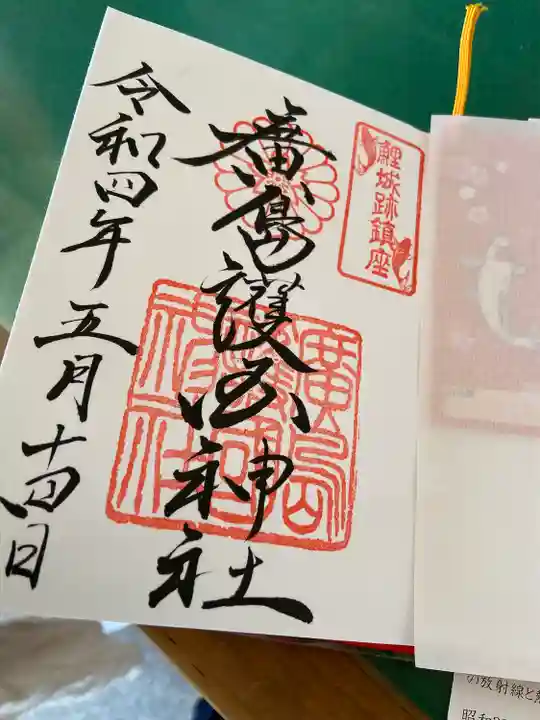 鯉城跡鎮座
廣島護国神社
廣島護國神社
令和四年五月十四日
の放射線と
昭和